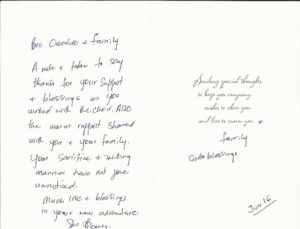 Bro Osvaldo + family
A note + token to say
thanks for your support
+ blessings as you
worked with the choir. Also
the warm rapport shared
with you + your family.
Your sacrifice + willing
manner have not gone
unnoticed.
Much love + blessings
in your new adventure
Sending special thoughts
to keep you company,
wishes to cheer you
and love to warm you +
family
blessings
Jun 16